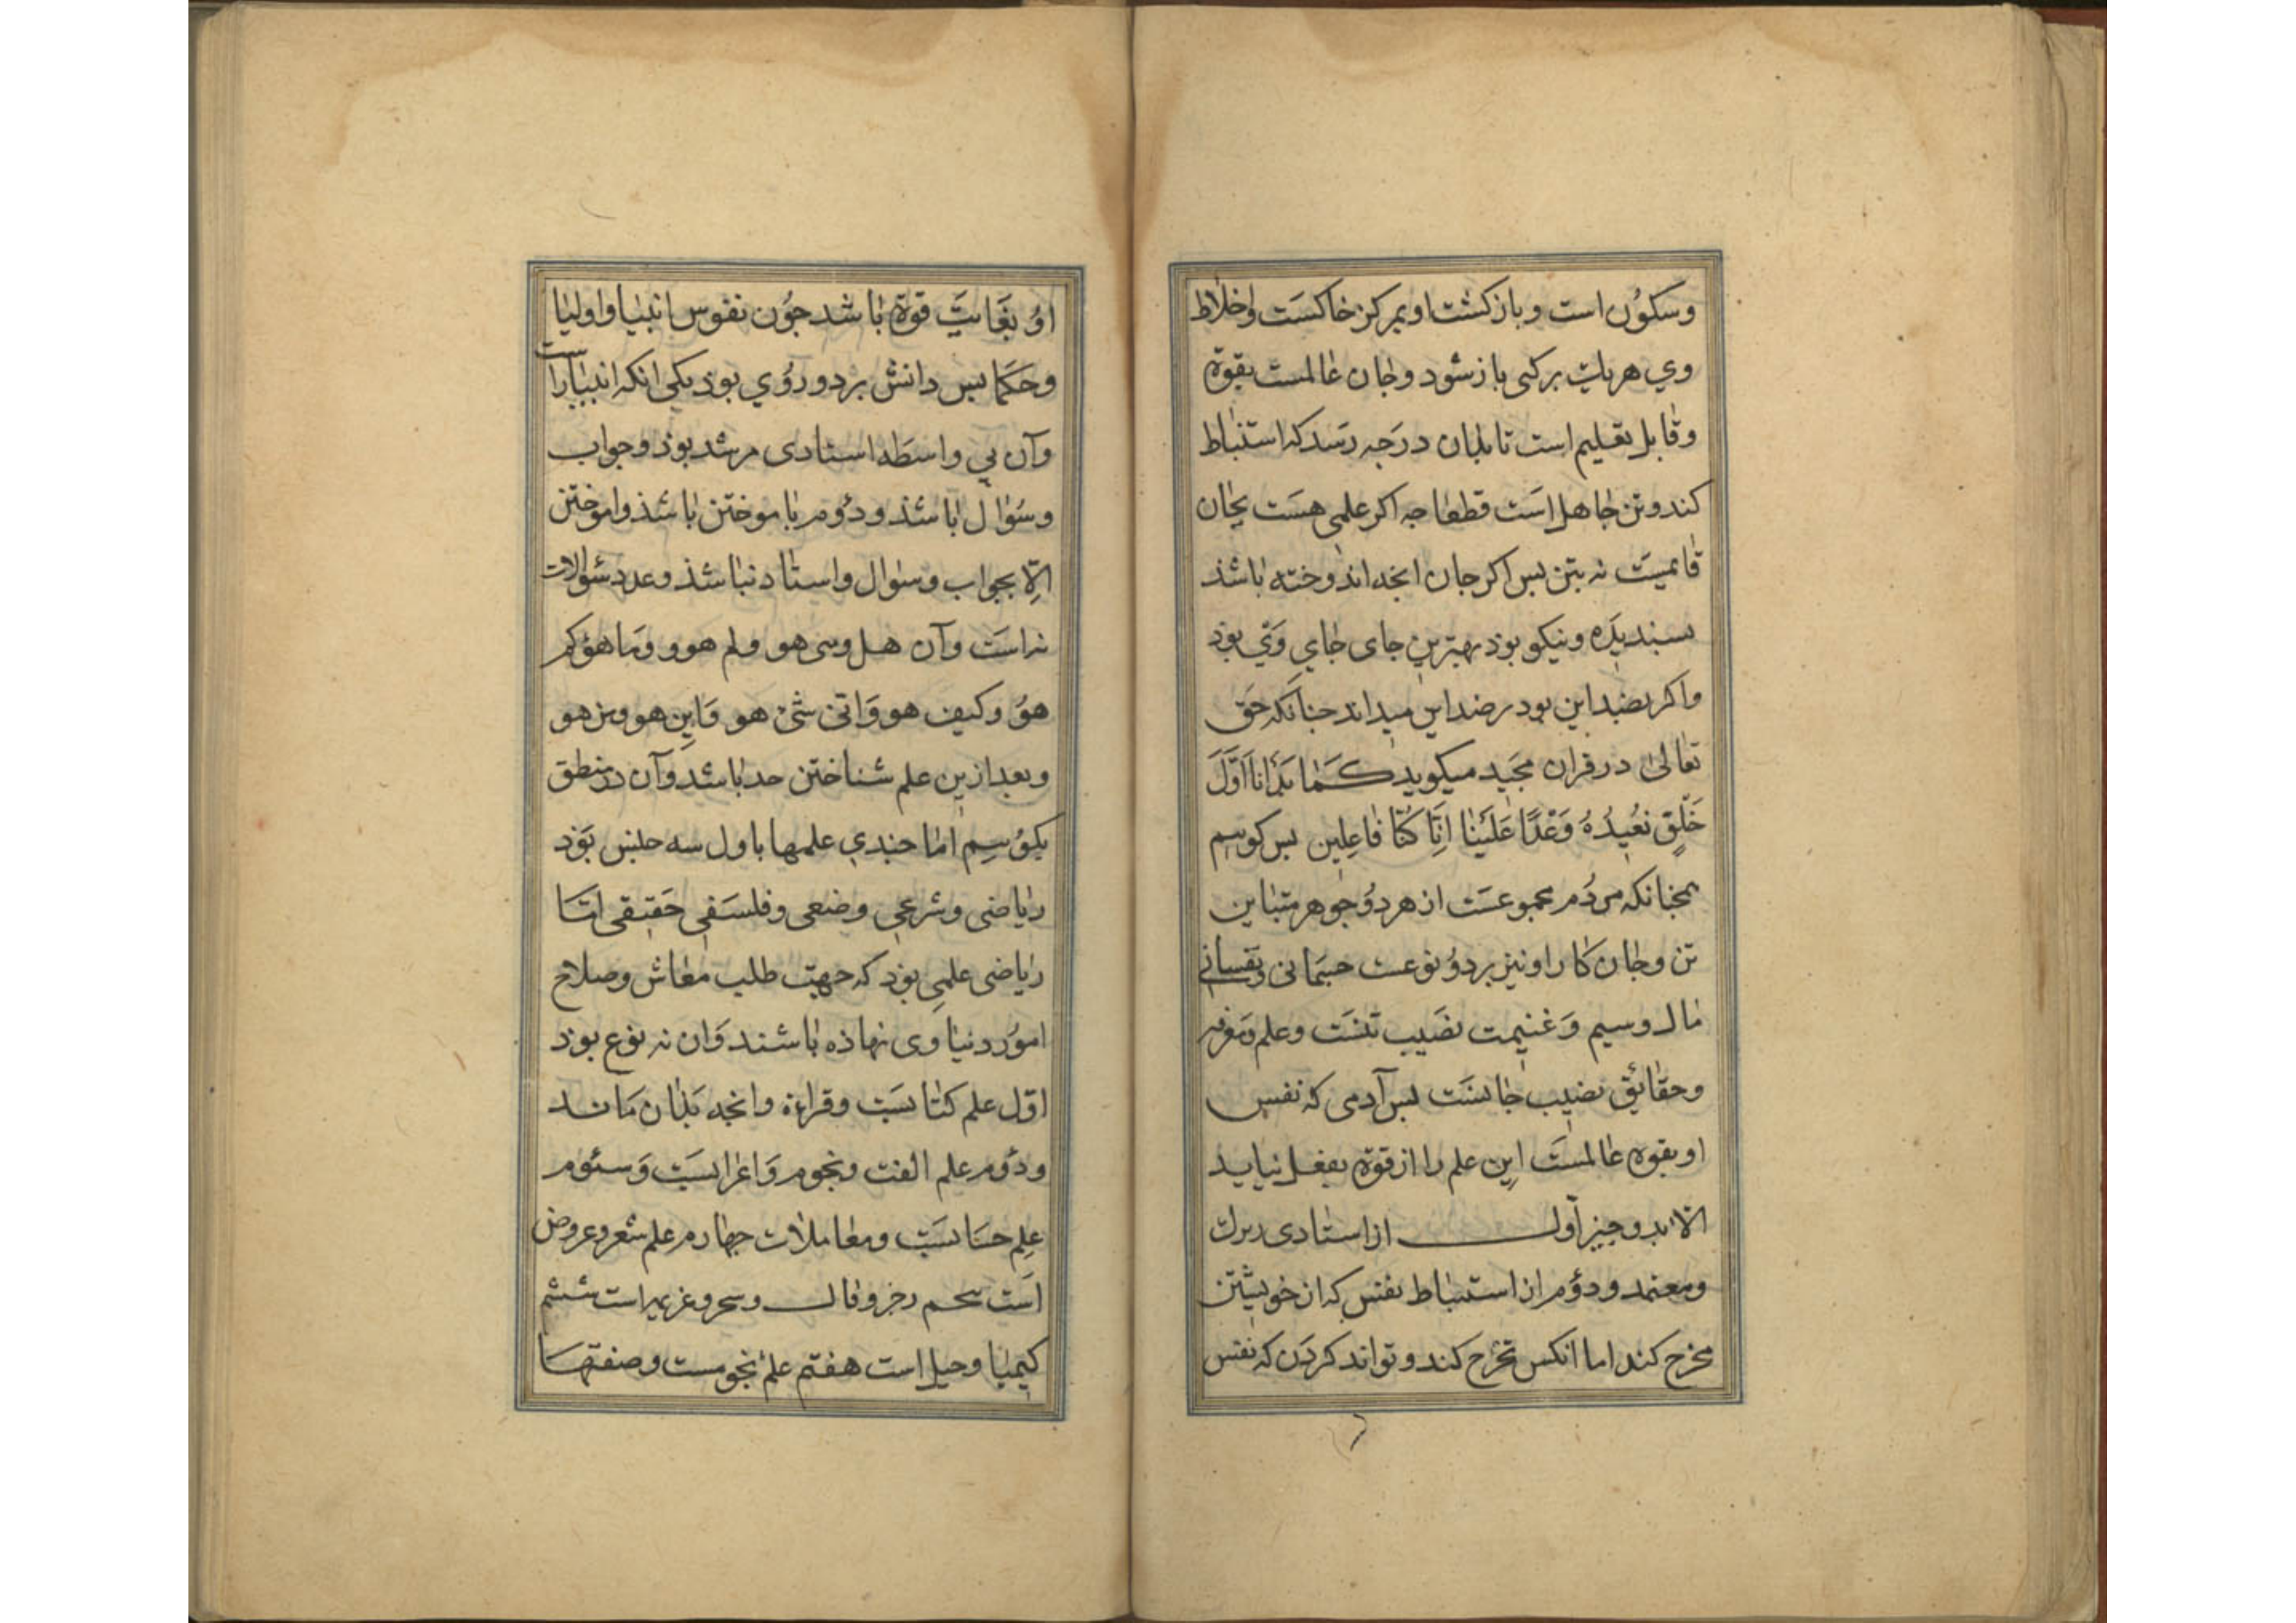 وسکوُن است وبازکشت او بمرکز خاکسَت واخلاط
وي هریک برکی باز شود وجان عالمست بقوة
وقابل تعلیم است تا بذان درَجه رسَد که استنباط
کند وتن جاهل اسَت قطعا جه اکر علمی هسَت بجان
قایمیست نه بتن بس اکر جان انجه اندوخته باشذ
بسندیده ونیکو بوذ بهترین جای جاي وَي بوذ
واکر بضد این بود برضد این میداند جنانکه حَق
تعالی در قران مجَید میکوید کَمَا بَدَأنا اَوَّلَ
خَلْقٍ نعُیدُهُ وَعْدًا عَلَیْنا اِنَّا کُنَّا فاعِلین بس کوییم
همجنانکه مردُم مجموعسَت از هر دوُ جوهر متباین
تن وجان کار او نیز بر دوُ نوعست جسَمانی ونفسانی
مال وسیم وَغنیمت نصَیب تنسَت وعلم ومعرفه
وحقائق نصیب جانست بس آدمی که نفس
او بقوة عالمسَت این علم را از قوة بفعل نیاید
الا بدو جیز اول از استادی بزرك
ومعتمد ودوُم از استنباط نفس که از خویشتن
مخرج کند اما انکس تخرج کند وتواند کردَن که نفس
اوُ بغَایتِ قوة باشد جوُن نفوس انبیا واولیا
وحکَما بس دانش بر دو روُي بوذ یکی انکه انبیا راست
وآن بي واسطَه استادی مرشد بوذ وجواب
وسُوال باشذ ودوُم باموختن باشذ واموختن
اِلّا بجواب وسوال واستاد نباشذ وعدد سُوالات
نه است وآن هل وسی هو ولم هو و ومَا هوُ کم
هوُ وکیف هو وَاتی شئ هو وَاین هو ومن هو
وبعد ازین علم شناختن حد باشد وآن در منطق
بکوُییم امّا جندي علمها باول سه جنس بوَذ
ریاضی وشرعی وضعی وفلسَفی حَقیقی امّا
ریاضی علمی بوذ که جهت طلب معاش وصلاح
امور دنیاوی نهاذه باشند وَان نه نوع بوذ
اوّل علم کتابتست وقراءة وانجه بَذان مَاند
ودوُم علم الغت ونجوم وَاعرابست وَسئوم
عِلم حسَابست ومعاملات جهارم علم شعر وعروض
است بنجم زجر وفال وسحر وعزیمه است ششم
کیمیا وحیل است هفتم علم نجومست وصنفتها